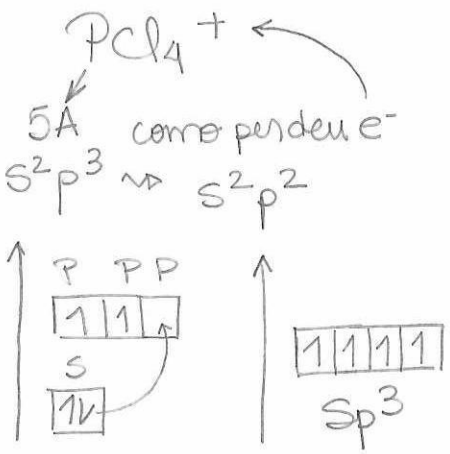 PCl4+
5A como perdeu e-
s2p3 ⇝ s2p2
P P P
1 1
S
1V
1 1 1 1
Sp3